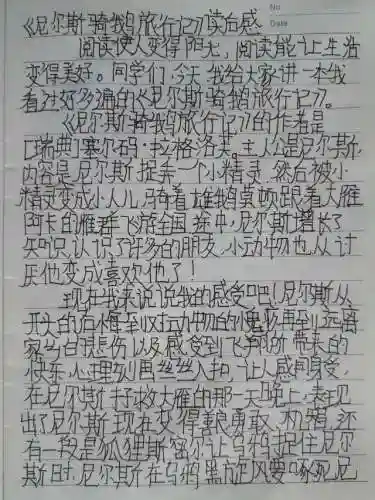 No
Date
《尼尔斯骑鹅旅行记》读后感
阅读使人变得阳光,阅读能让生活
变得美好。同学们,今天我给大家讲一本我
看过好多遍的《尼尔斯骑鹅旅行记》。
《尼尔斯骑鹅旅行记》的作者是
[瑞典]塞尔玛·拉格洛夫。主人公是尼尔斯
内容是尼尔斯捉弄一个小精灵,然后被小
精灵变成小人儿,骑着雄鹅莫顿跟着大雁
阿卡的雁群飞游全国,途中,尼尔斯增长了
知识,认识了许多的朋友,小动物也从讨
厌他变成喜欢他了!
现在我来说说我的感受吧!尼尔斯从
开头的后悔到对动物的 再到远离
家乡的悲伤以及感受到飞翔所带来的
快乐,心理刻画丝丝入扣,让人感同身受,
在尼尔斯拯救大雁的那一天晚上,表现
出了尼尔斯现在变得善良勇敢、机智,还
有一段是狐狸斯密尔让乌鸦捉住尼尔
斯时,尼尔斯在乌鸦黑旋风要啄死尼